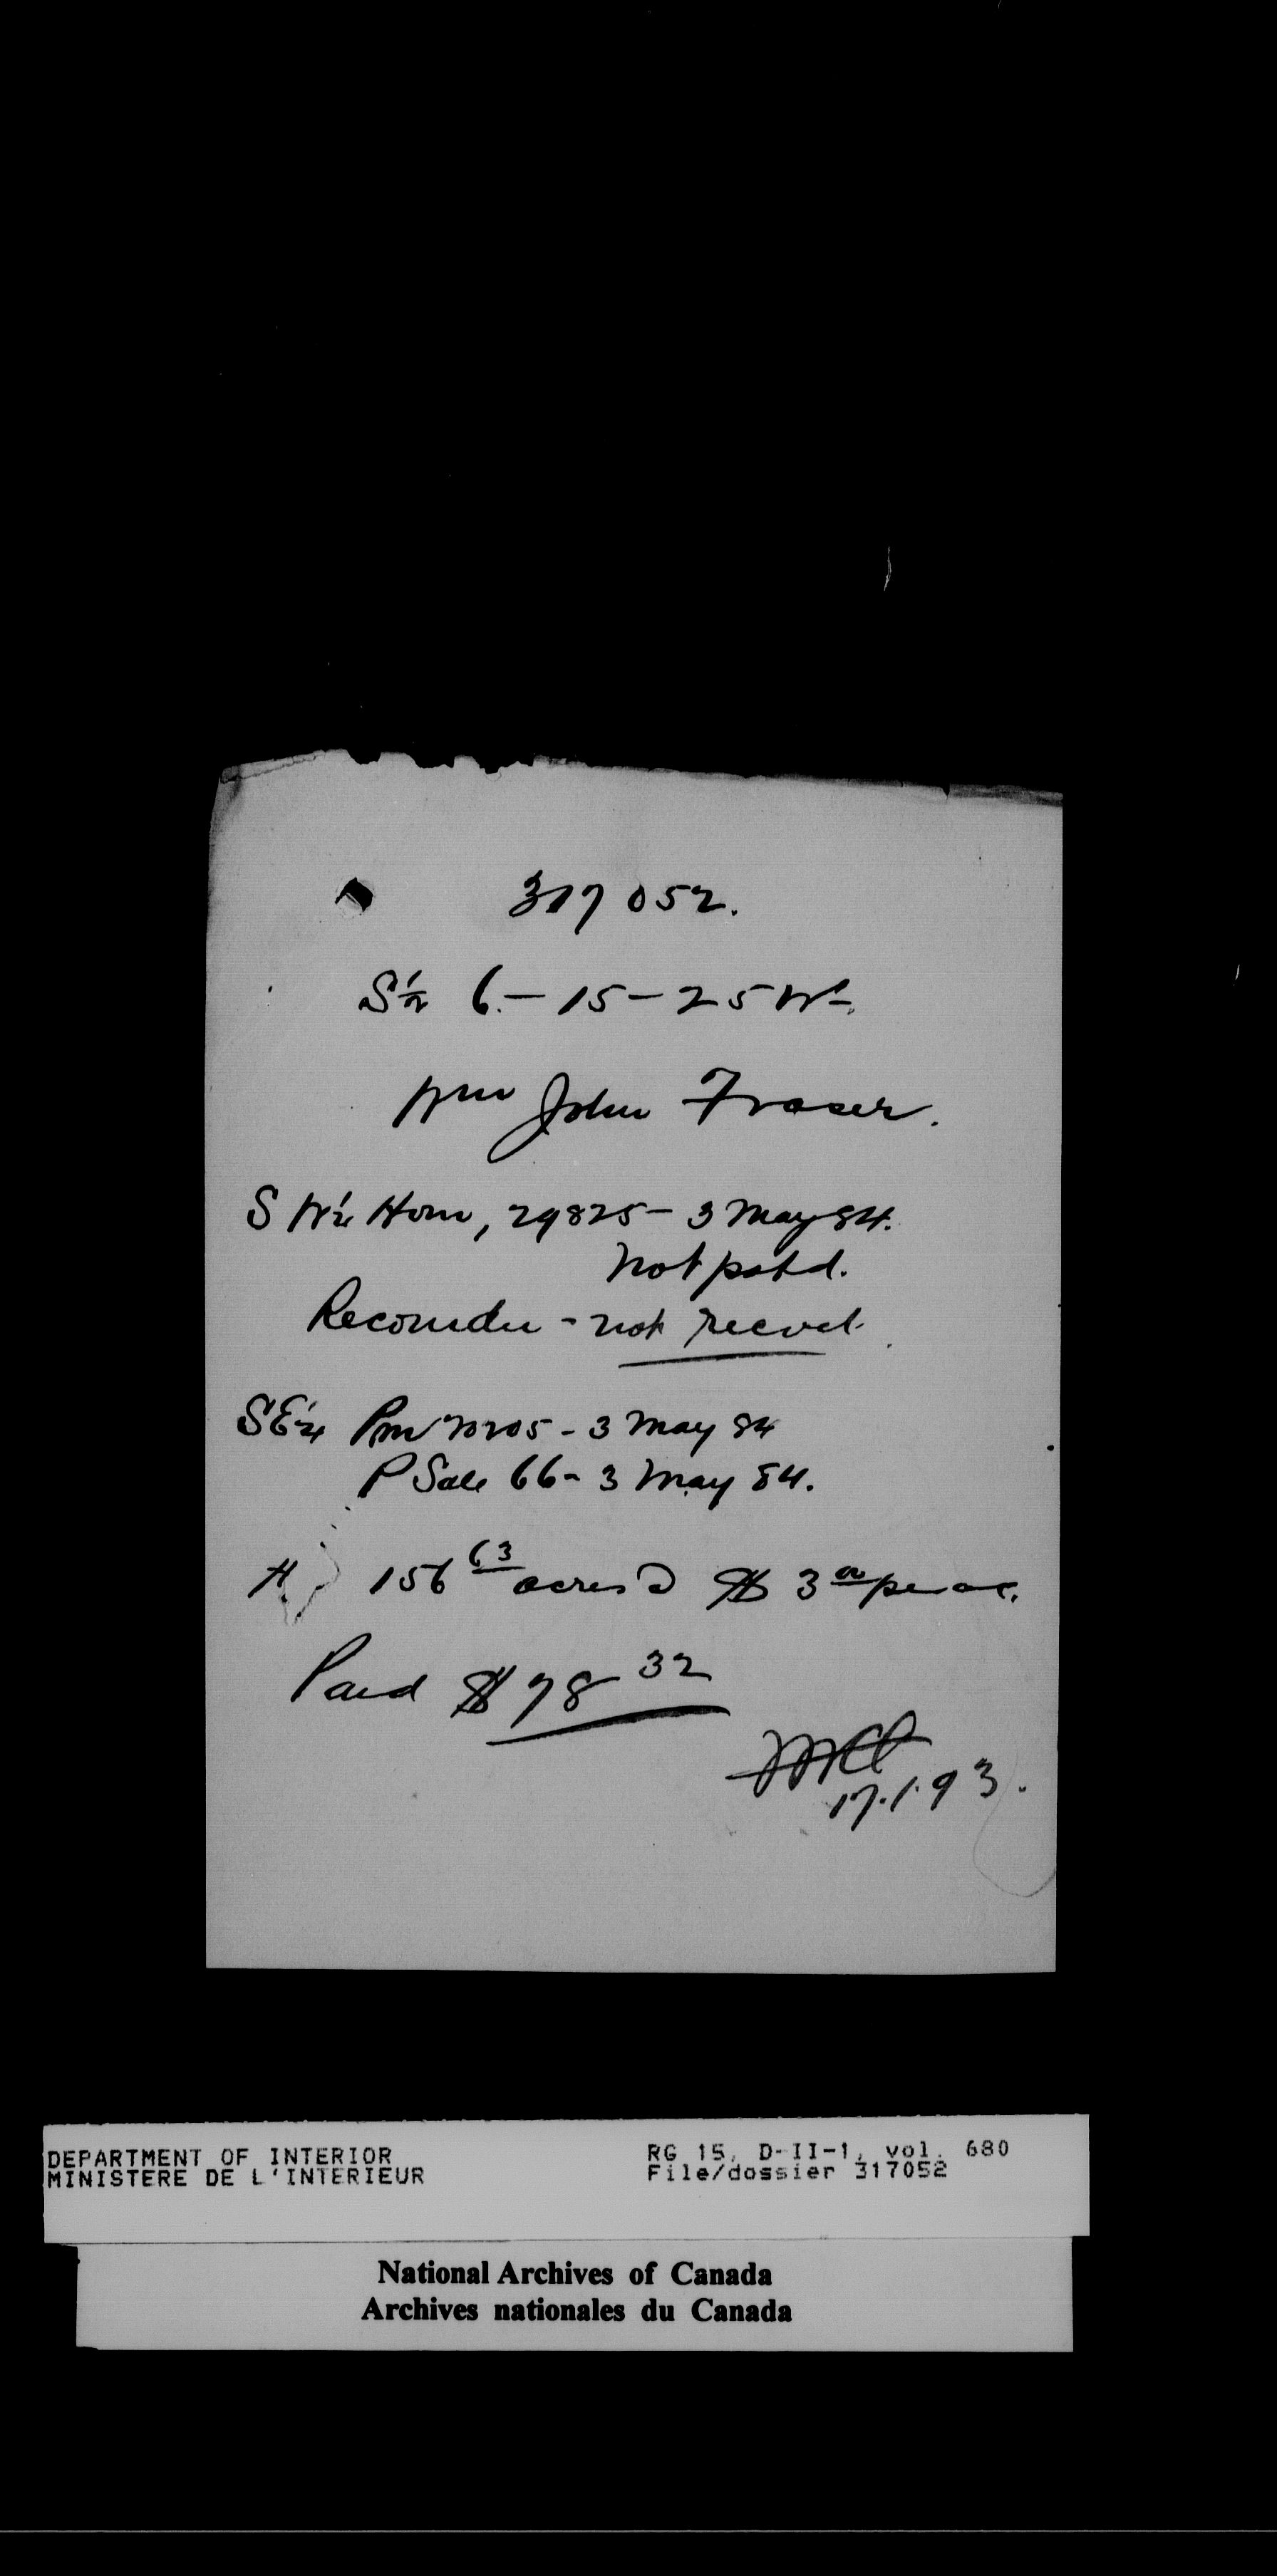 317052.
S½ 6.-15-25W-.
Wm John Fraser.
S W¼ Hom, 29825- 3 May 84.
not patd.
Recomdn - not recvd.
SE¼ Pm - 3 May 84
P Sale 66- 3 May 84.
156 63 acres @ $ 3 00 per ac.
Paid $ 78 32
17.1.93.
DEPARTMENT OF INTERIOR
MINISTERE DE L'INTERIEUR
RG 15, D-II-1, vol. 680
File/dossier 317052
National Archives of Canada
Archives nationales du Canada